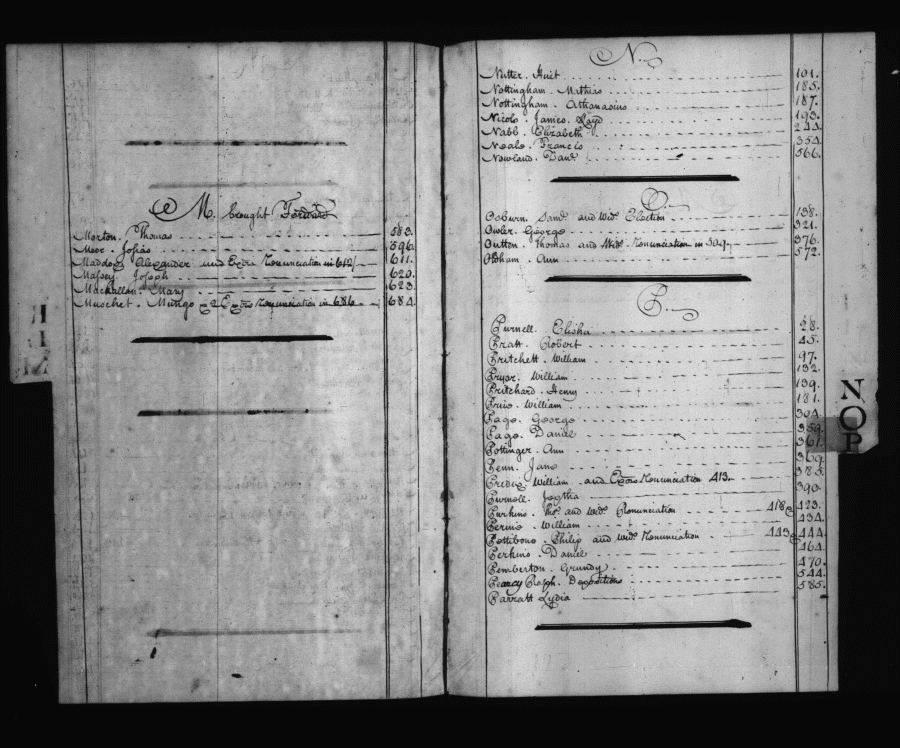 M. brought Forward
Morton. Thomas 583.
Moor. Josias 596.
Maddox Alexander and Exors Renunciation in 612 611.
Massey. Joseph 620.
Mackallan. Mary 623.
Muschet. Mungo 2 Exors Renunciation in 686 684.
N.
Nutter. Huit 101.
Nottingham. Mathias 185.
Nottingham. Athanasius 187.
Nicols. James. 193.
Nabb. Elizabeth 244.
Neale. Francis 354.
Newland. Danl 566.
O.
Osburn. Saml and Wids. Election 138.
Owler. George 321.
Outton. Thomas and Wids. Renunciation in 376.
Oldham. Ann 572.
P.
Purnell. Elisha 28.
Pratt. Robert 45.
Pritchett. William 97.
Pryor. William 132.
Pritchard. Henry 139.
William 181.
Page. George 304.
Page. Daniel 359.
Pottinger. Ann 361.
Penn. Jane 369.
William. and Exors Renunciation 413. 385.
Purnell. 390.
Purkins. Thos. and Wids. Renunciation 418 & 423.
Perins. William 434.
Pettibone. Philip and Wids Renunciation 443 & 444.
Perkins. Daniel 464.
Pemberton. Grundy 470.
Pearcy Ralph. Depositions 544.
Parratt Lydia 585.
N
O
P